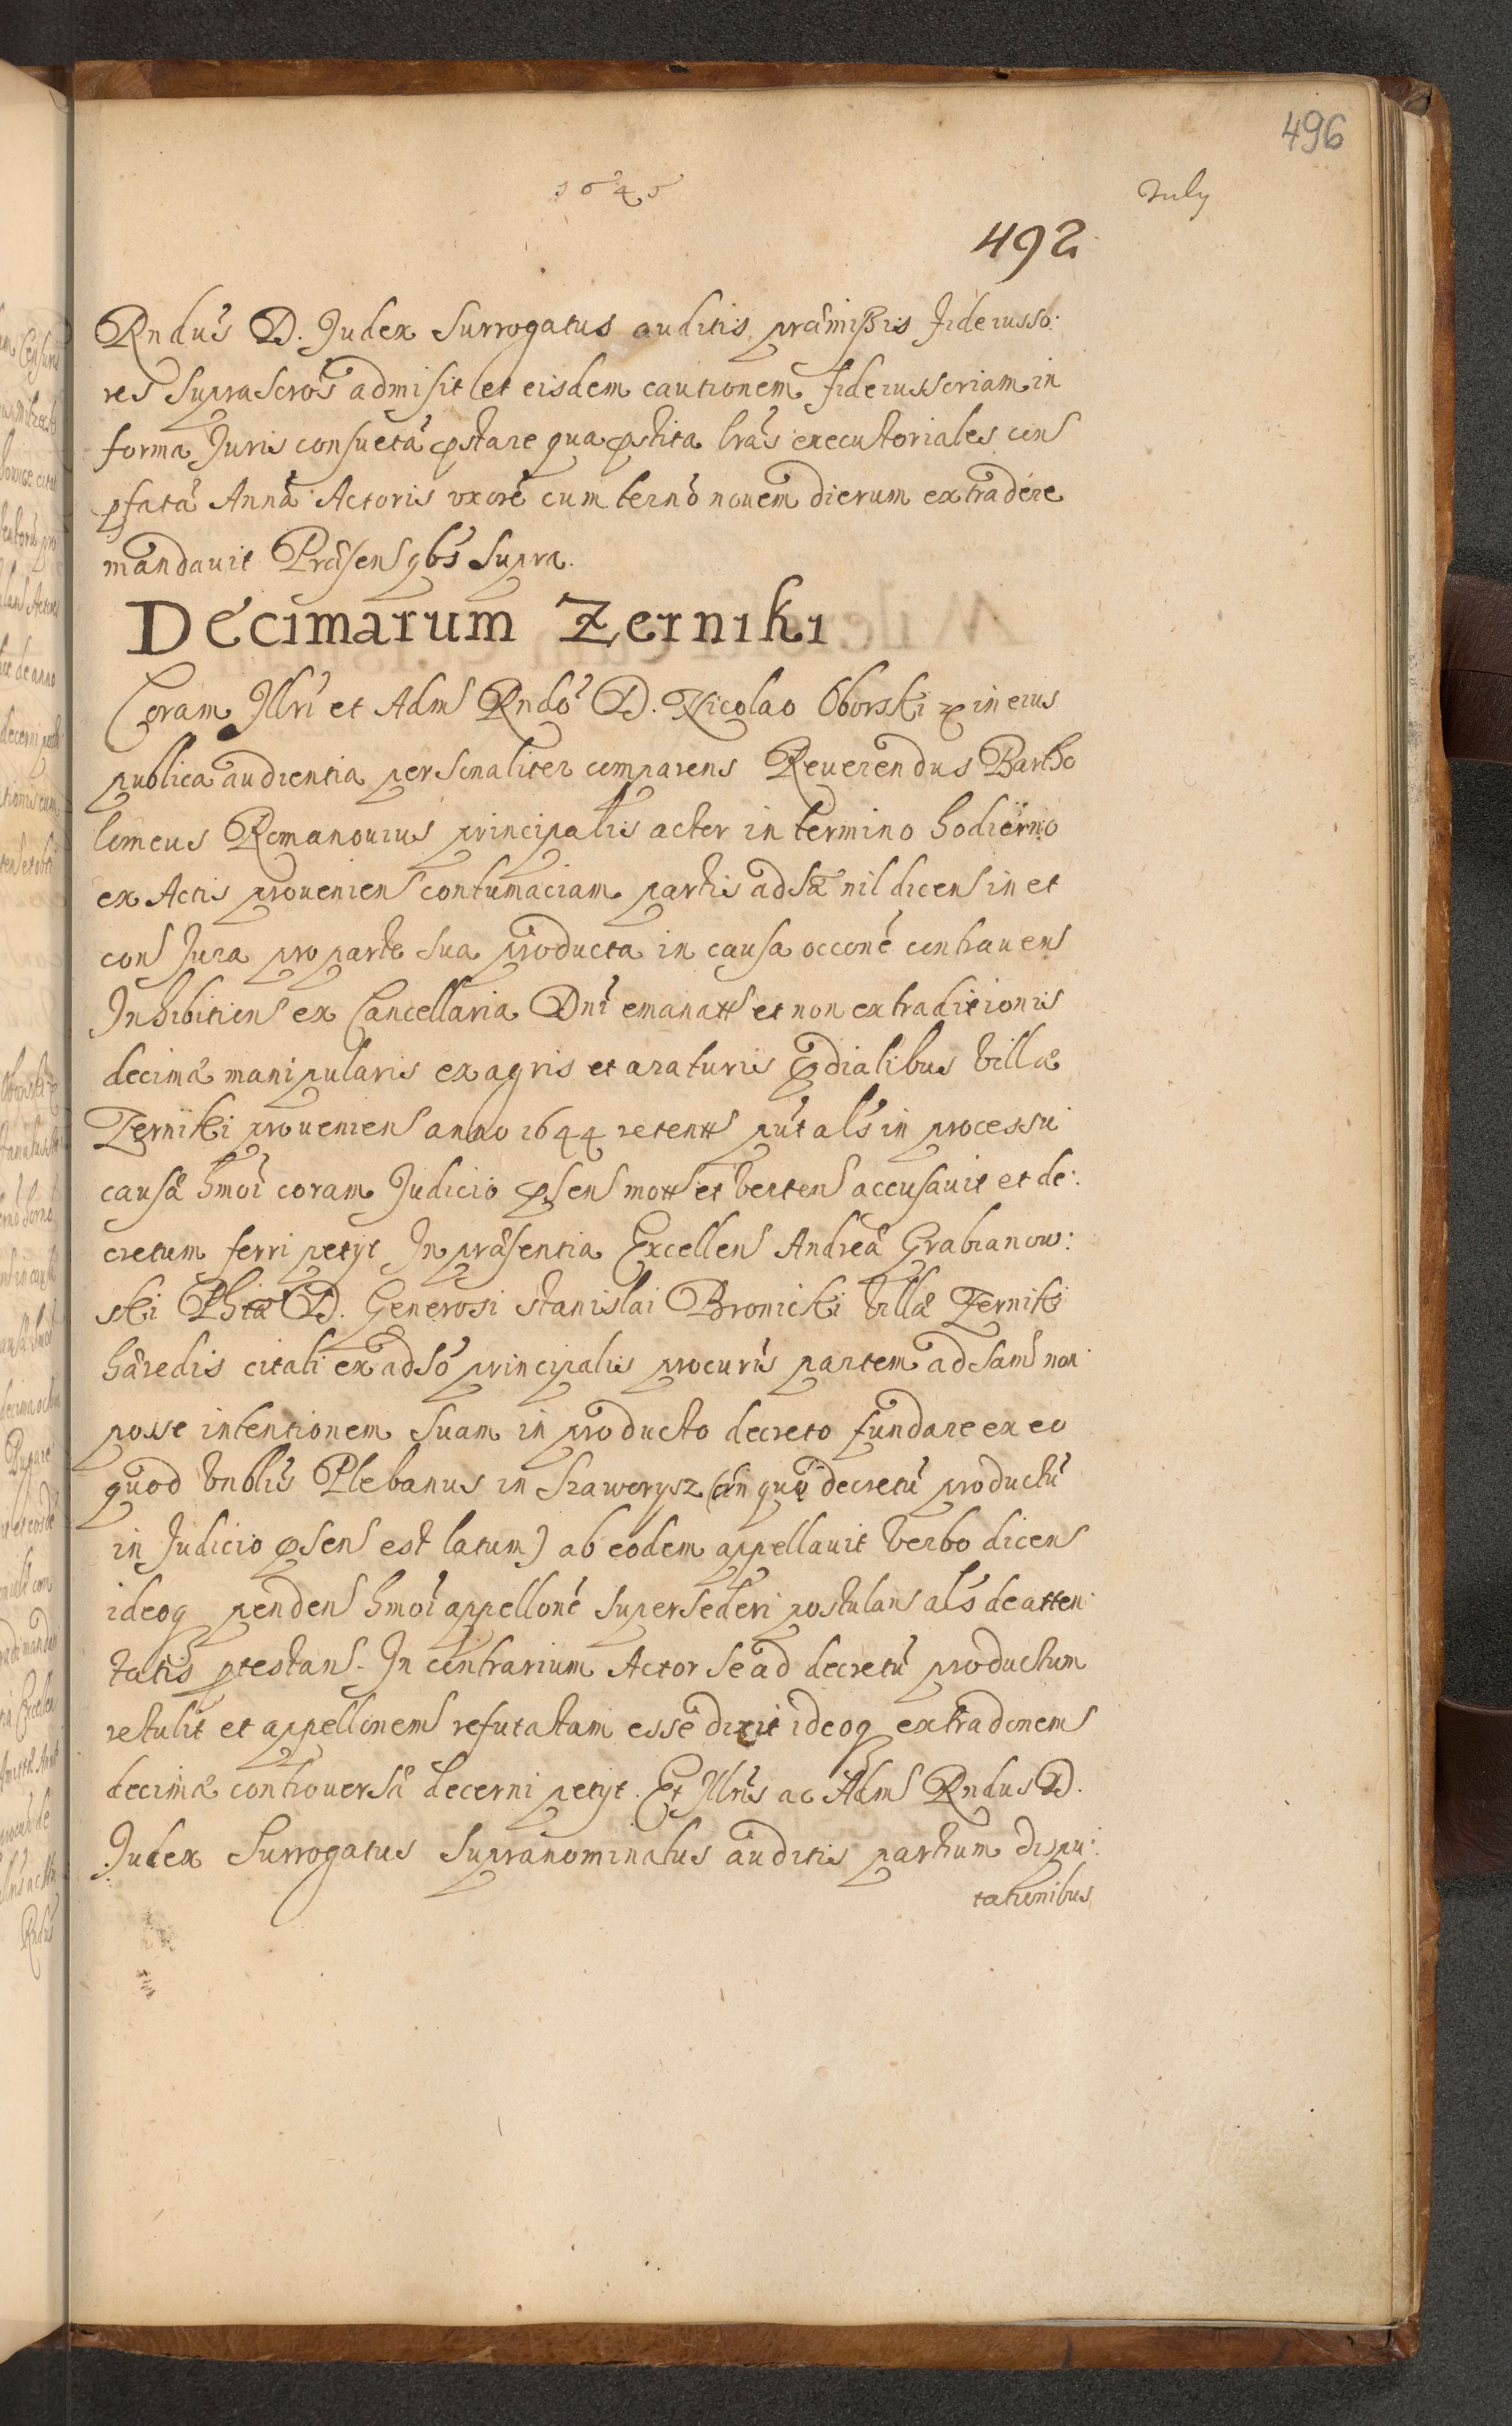 496
1645 July
492
Rndus D. Judex Surrogatus auditis præmißis fideiusso:
res suprascros admisit et eisdem cautionem fideiussoriam in
forma Juris consueta pstare qua pstita lras executoriales cons
pfatã Annã Actoris uxorẽ cum termo nouem dierum extradere
mandauit Præsen qbs supra.
Decimarum Zerniki
Coram Illri et Adm Rndo D. Nicolao Oborski in eius
publica audientia personaliter comparens Reuerendus Bartho
lomeus Romanouius principalis actor in termino hodierno
ex Actis prouenien contumaciam partis adsæ nil dicen in et
con Jura pro parte sua producta in causa occone contrauen
Inhibitien ex Cancellaria Dni emanatt et non extraditionis
decimæ manipularis ex agris et araturis pdialibus villæ
Zerniki prouenien anno 1644 retentt put als in processu
causæ hmoi coram Judicio psen mott et verten accusauit et de:
cretum ferri petijt In præsentia Excellen Andreæ Grabianow:
ski Phiæ D. Generosi Stanislai Bronicki villæ Zerniki
hæredis citati ex adso principalis procuris partem adsam non
posse intentionem suam in producto decreto fundare ex eo
quod Vnblis Plebanus in Skaworysz (in quo decretu productu
in Judicio psen est latum) ab eodem appellauit verbo dicen
ideoq penden hmoi appellone supersederi postulans als de atten:
tatis ptestans. In contrarium Actor se ad decretu productum
retulit et appellonem refutatam esse dixit ideoq extradonem
decimæ controuersæ decerni petijt. Et Illris ac Adm Rndus D.
Judex Surrogatus supranominatus auditis partium dispu:
tationibus